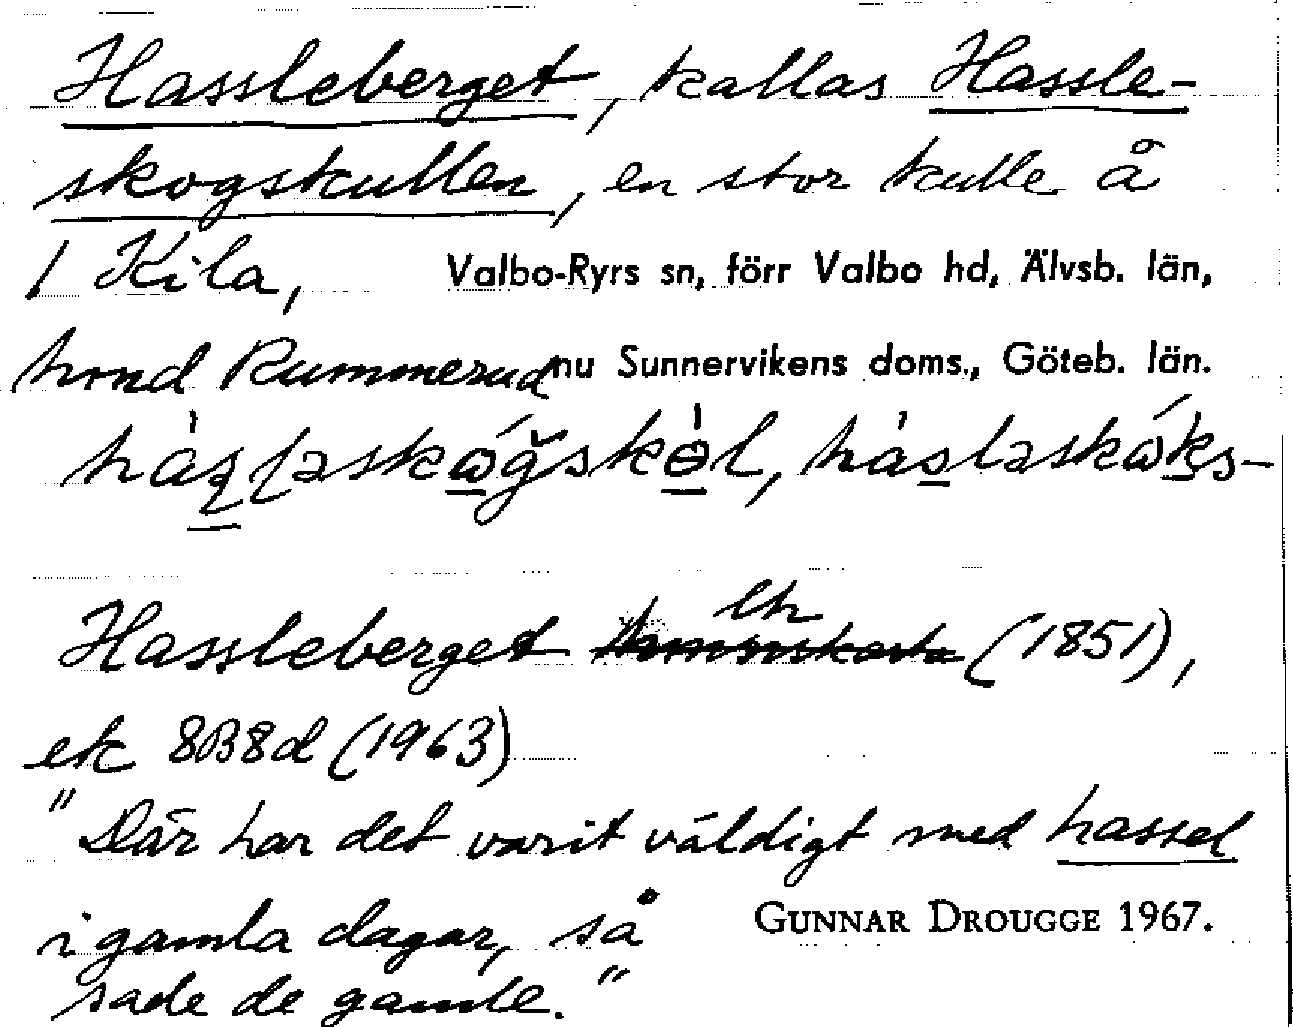 Hassleberget, kallas Hassle-
skogskullen, en stor kulle å
1 Kila, Valbo-Ryrs sn, förr Valbo hd, Älvsb. län,
Rummerud nu Sunnervikens doms., Göteb. län.
Hassleberget (1851),
ek 8B8d (1963)
"Där har det varit väldigt med hassel
i gamla dagar, så GUNNAR DROUGGE 1967.
sade de gamle."